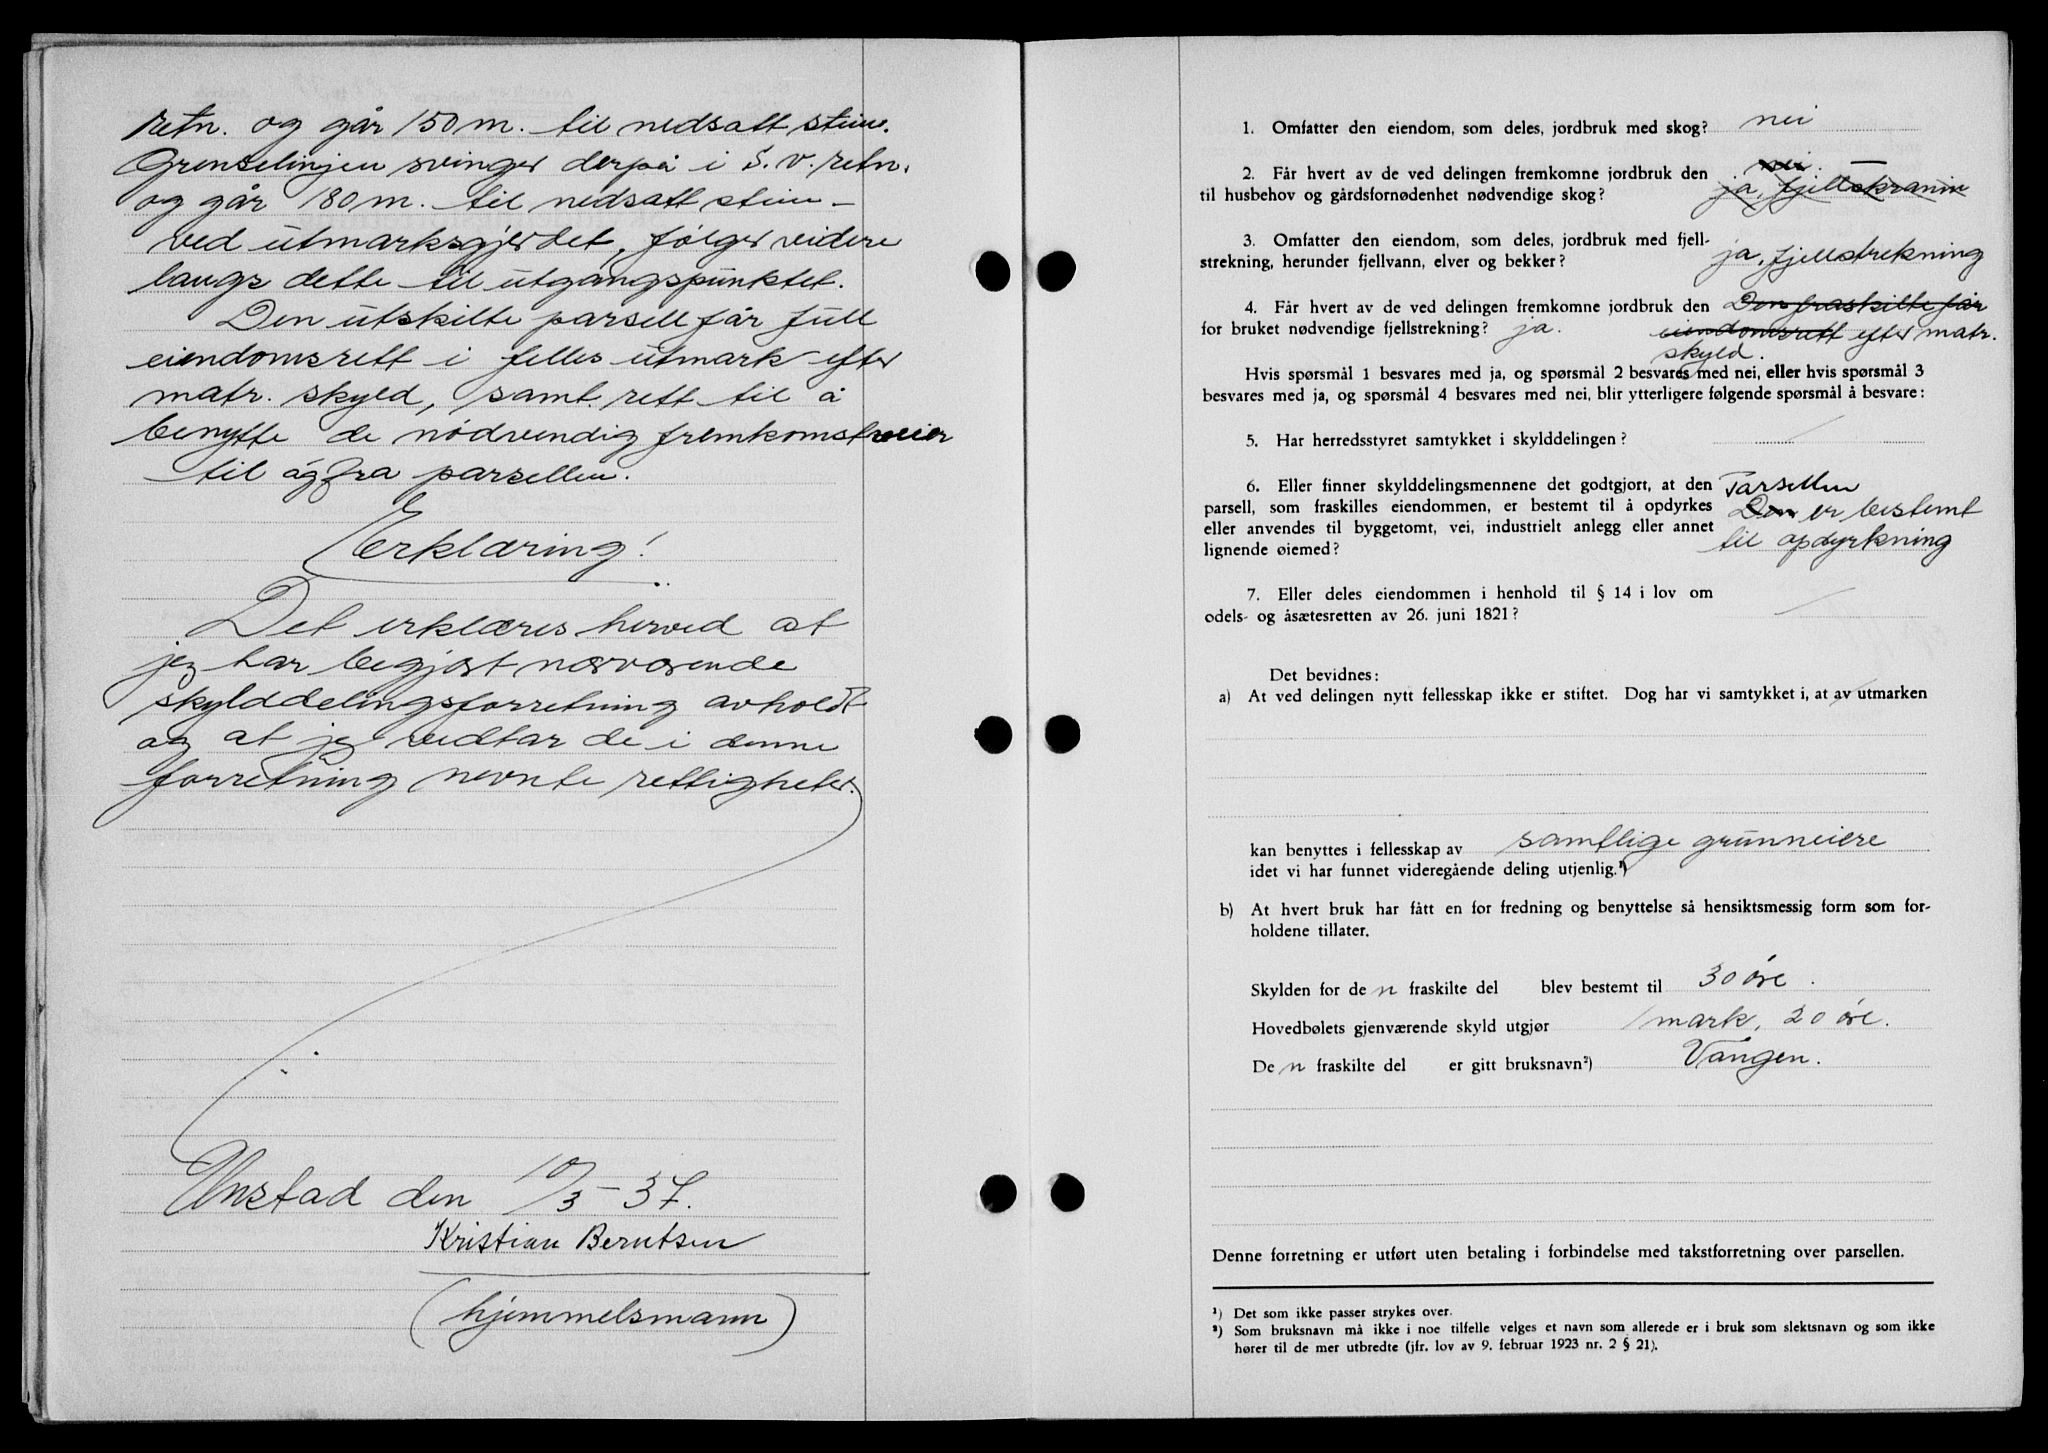 retn. og går 150 m. til nedsatt stein.
Grenselinjen svinger derpå i S. v. retn.
og går 180 m. til nedsatt stein
ved utmarksgjerdet, følger videre
langs dette til utgangspunktet.
Den utskilte parsell får full
eiendomsrett i felles utmark efter
matr. skyld, samt rett til å
benytte de nødvendig fremkomstveier
til og fra parsellen.
Erklæring!
Det erklæres herved at
jeg har begjært nærværende
skylddelingsforretning avholdt
og at jeg vedtar de i denne
forretning nevnte rettigheter.
Unstad den 10/3-37.
Kristian Berntsen
(hjemmelsmann)
1. Omfatter den eiendom, som deles, jordbruk med skog? nei
2. Får hvert av de ved delingen fremkomne jordbruk den nei.
til husbehov og gårdsfornødenhet nødvendige skog? ja, —
3. Omfatter den eiendom, som deles, jordbruk med fjell-
strekning, herunder fjellvann, elver og bekker? ja, fjellstrekning
4. Får hvert av de ved delingen fremkomne jordbruk den Den fraskilte får
for bruket nødvendige fjellstrekning? ja. eiendomsrett efter matr.
skyld.
Hvis spørsmål 1 besvares med ja, og spørsmål 2 besvares med nei, eller hvis spørsmål 3
besvares med ja, og spørsmål 4 besvares med nei, blir ytterligere følgende spørsmål å besvare:
5. Har herredsstyret samtykket i skylddelingen? /
6. Eller finner skylddelingsmennene det godtgjort, at den Parsellen
parsell, som fraskilles eiendommen, er bestemt til å opdyrkes Den er bestemt
eller anvendes til byggetomt, vei, industrielt anlegg eller annet til opdyrkning
lignende øiemed?
7. Eller deles eiendommen i henhold til § 14 i lov om
odels- og åsætesretten av 26. juni 1821? /
Det bevidnes:
a) At ved delingen nytt fellesskap ikke er stiftet. Dog har vi samtykket i, at av utmarken
kan benyttes i fellesskap av samtlige grunneiere
idet vi har funnet videregående deling utjenlig.¹)
b) At hvert bruk har fått en for fredning og benyttelse så hensiktsmessig form som for-
holdene tillater.
Skylden for de n fraskilte del blev bestemt til 30 øre.
Hovedbølets gjenværende skyld utgjør 1 mark, 20 øre.
De n fraskilte del er gitt bruksnavn²) Vangen.
Denne forretning er utført uten betaling i forbindelse med takstforretning over parsellen.
¹) Det som ikke passer strykes over.
²) Som bruksnavn må ikke i noe tilfelle velges et navn som allerede er i bruk som slektsnavn og som ikke
hører til de mer utbredte (jfr. lov av 9. februar 1923 nr. 2 § 21).